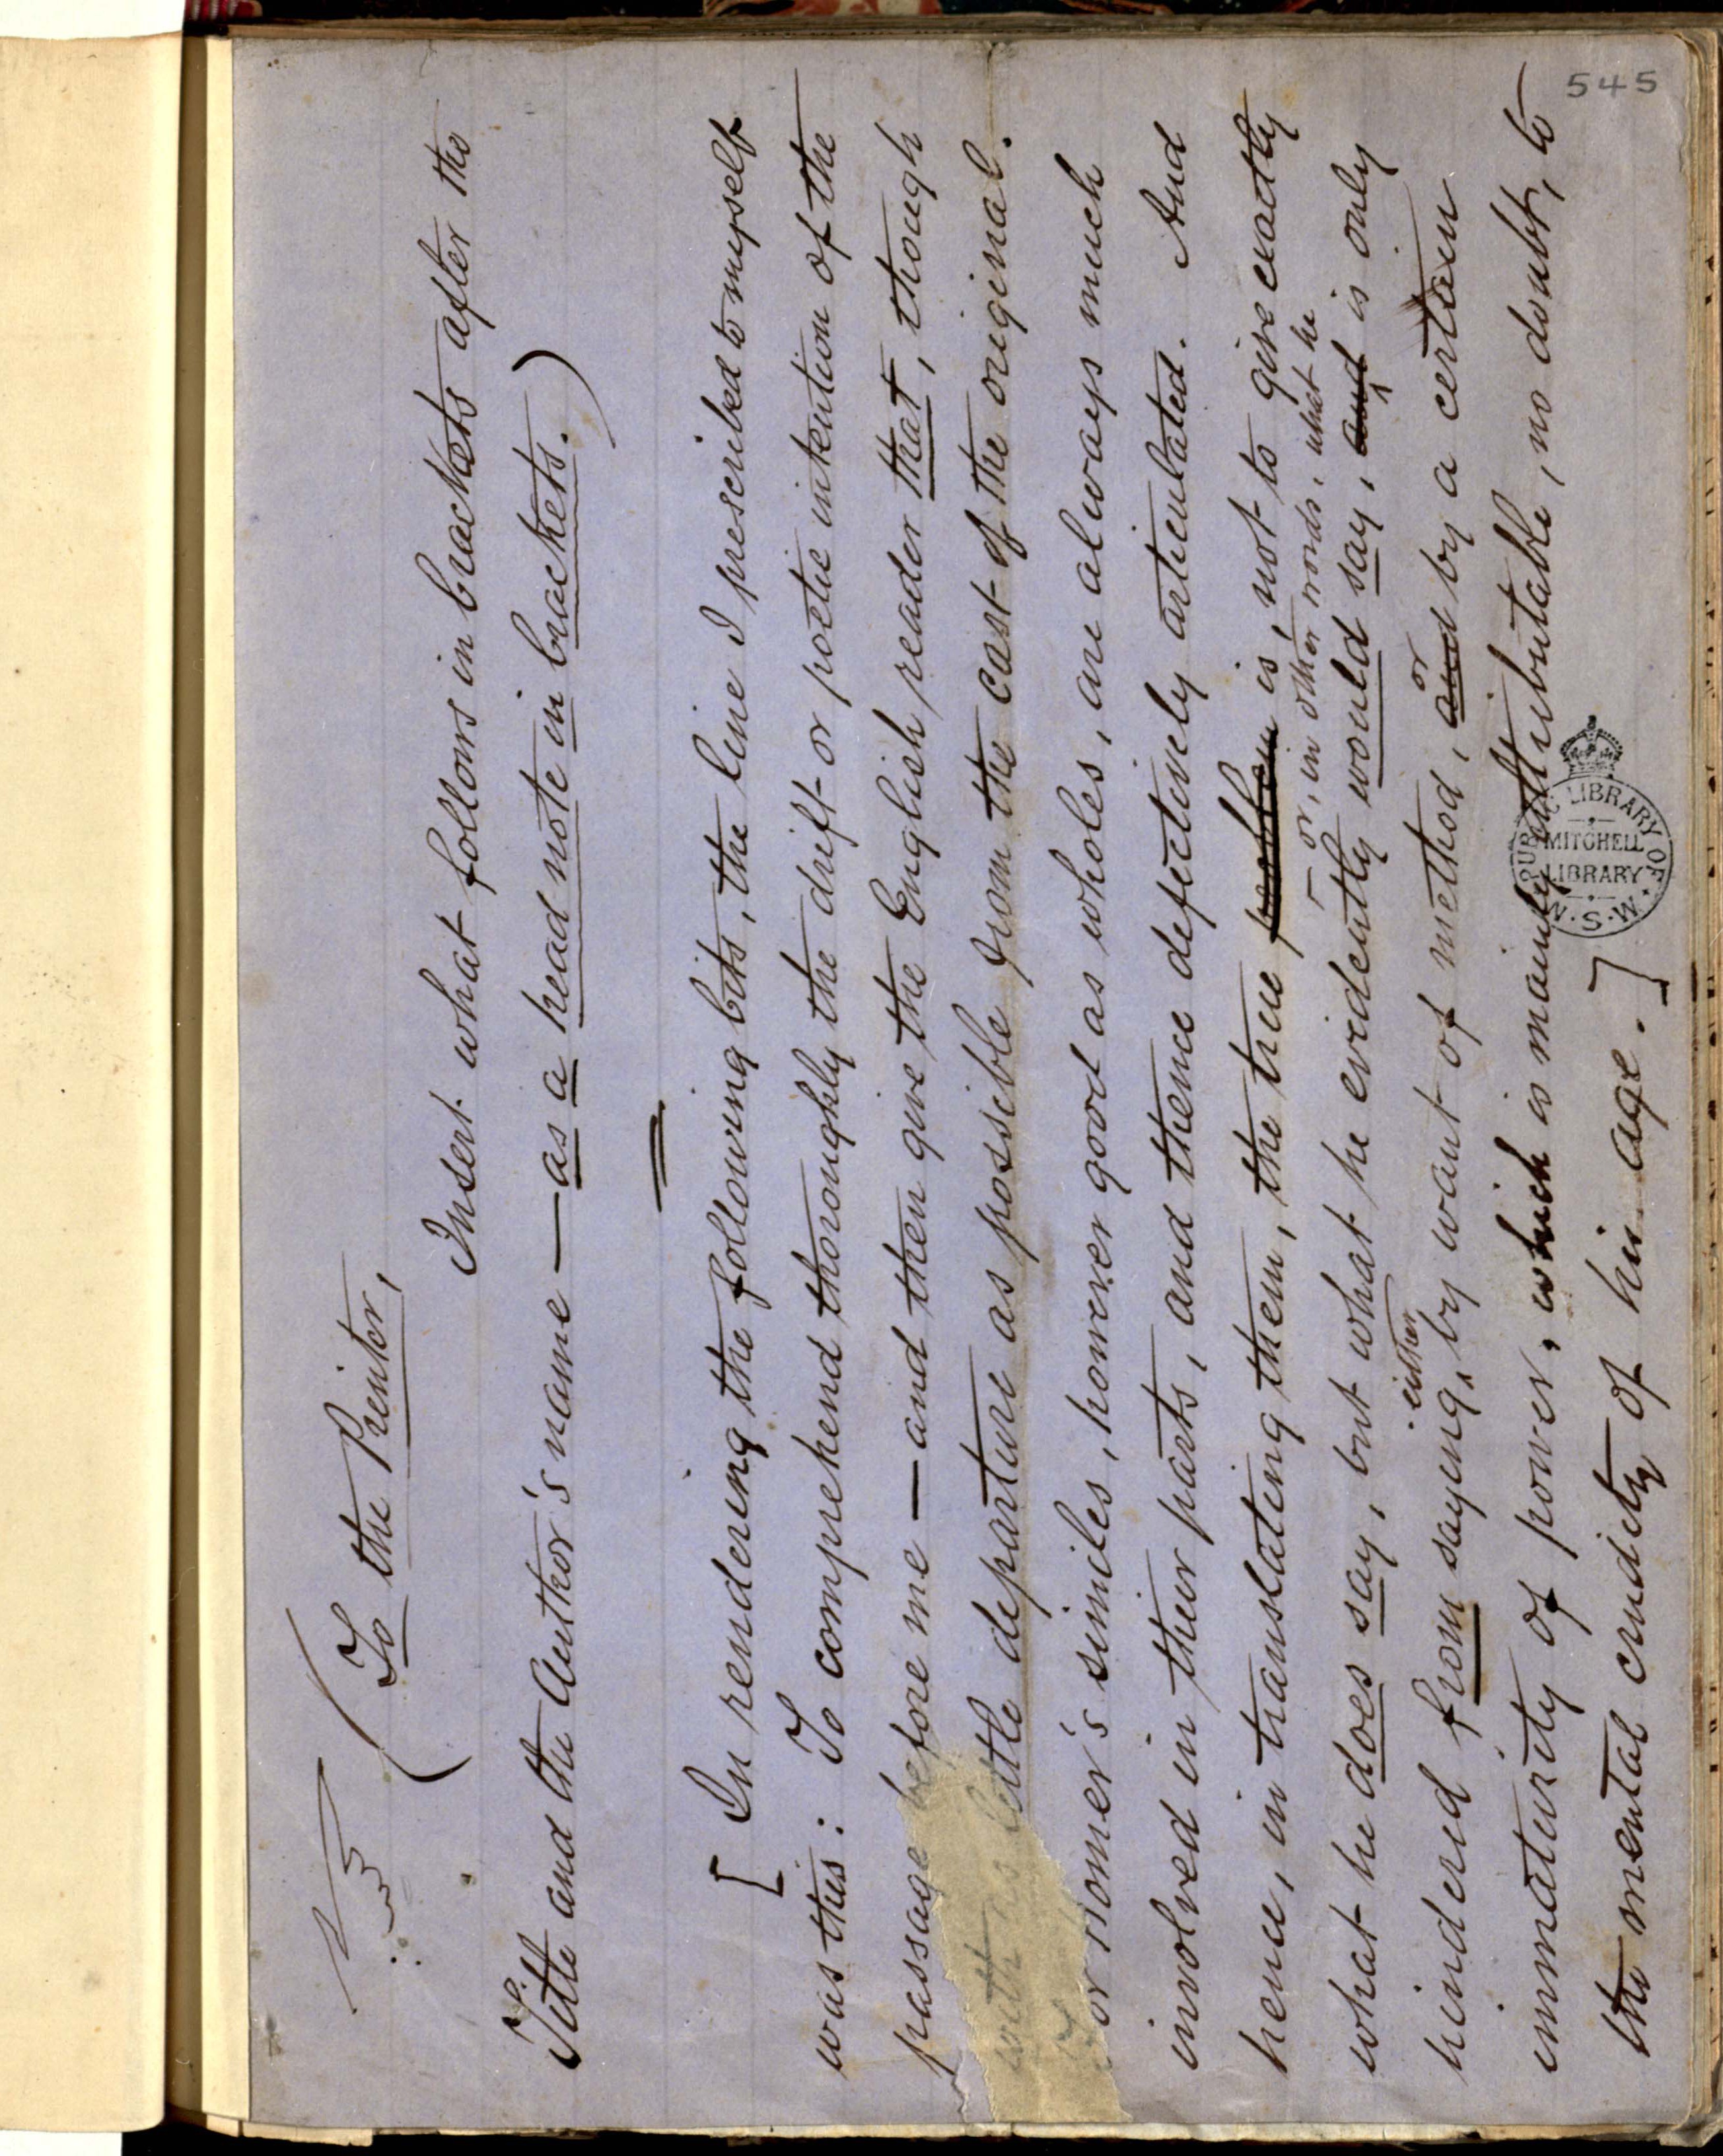 (To the Printer,
Insert what follows in brackets after the
Title and the Author's name — as a head note in brackets.)
[In rendering the following bits, the line I prescribed to myself
was this: To comprehend thoroughly the drift or poetic intention of the
passage before me — and then give the English reader that, though
with as little departure as possible from the cast of the original.
For Homer's similes, however good as wholes, are always much
involved in their parts, and thence defectively articulated. And
hence, in translating them, the true is, not to give exactly
— or, in other words, what he
what he does say, but what he evidently would say, and is only
either or
hindered from saying, by want of method, and by a certain
immaturity of power, which is mainly attributable, no doubt, to
the mental crudity of his age.]
545
PUBLIC LIBRARY OF N.S.W.
MITCHELL
LIBRARY